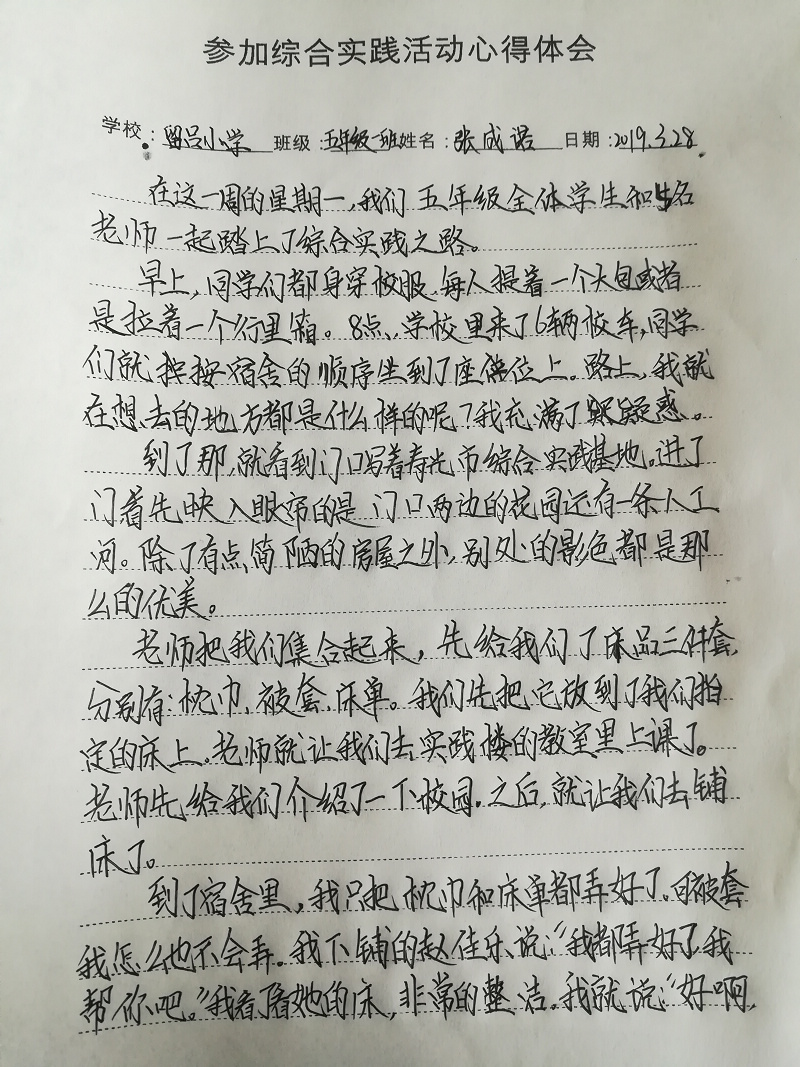 参加综合实践活动心得体会
学校：留吕小学 班级：五年级一班 姓名：张成诺 日期：2019.3.28
在这一周的星期一，我们五年级全体学生和5名
老师一起踏上了综合实践之路。
早上，同学们都身穿校服，每人提着一个大包或者
是拉着一个行里箱。8点，学校里来了6辆校车，同学
们就按按宿舍的顺序坐到了座位上。路上，我就
在想，去的地方都是什么样的呢？我充满了疑惑。
到了那，就看到门口写着寿光市综合实践基地。进了
门着先映入眼帘的是门口两边的花园还有一条人工
河。除了有点简陋的房屋之外，别处的景色都是那
么的优美。
老师把我们集合起来，先给我们了床品三件套，
分别有：枕巾、被套、床单。我们先把它放到了我们指
定的床上，老师就让我们去实践楼的教室里上课了。
老师先给我们介绍了一下校园，之后，就让我们去铺
床了。
到了宿舍里，我只把枕巾和床单都弄好了，可被套
我怎么也不会弄。我下铺的赵佳乐说：“我都弄好了，我
帮你吧。”我看了看她的床，非常的整洁。我就说：“好啊，